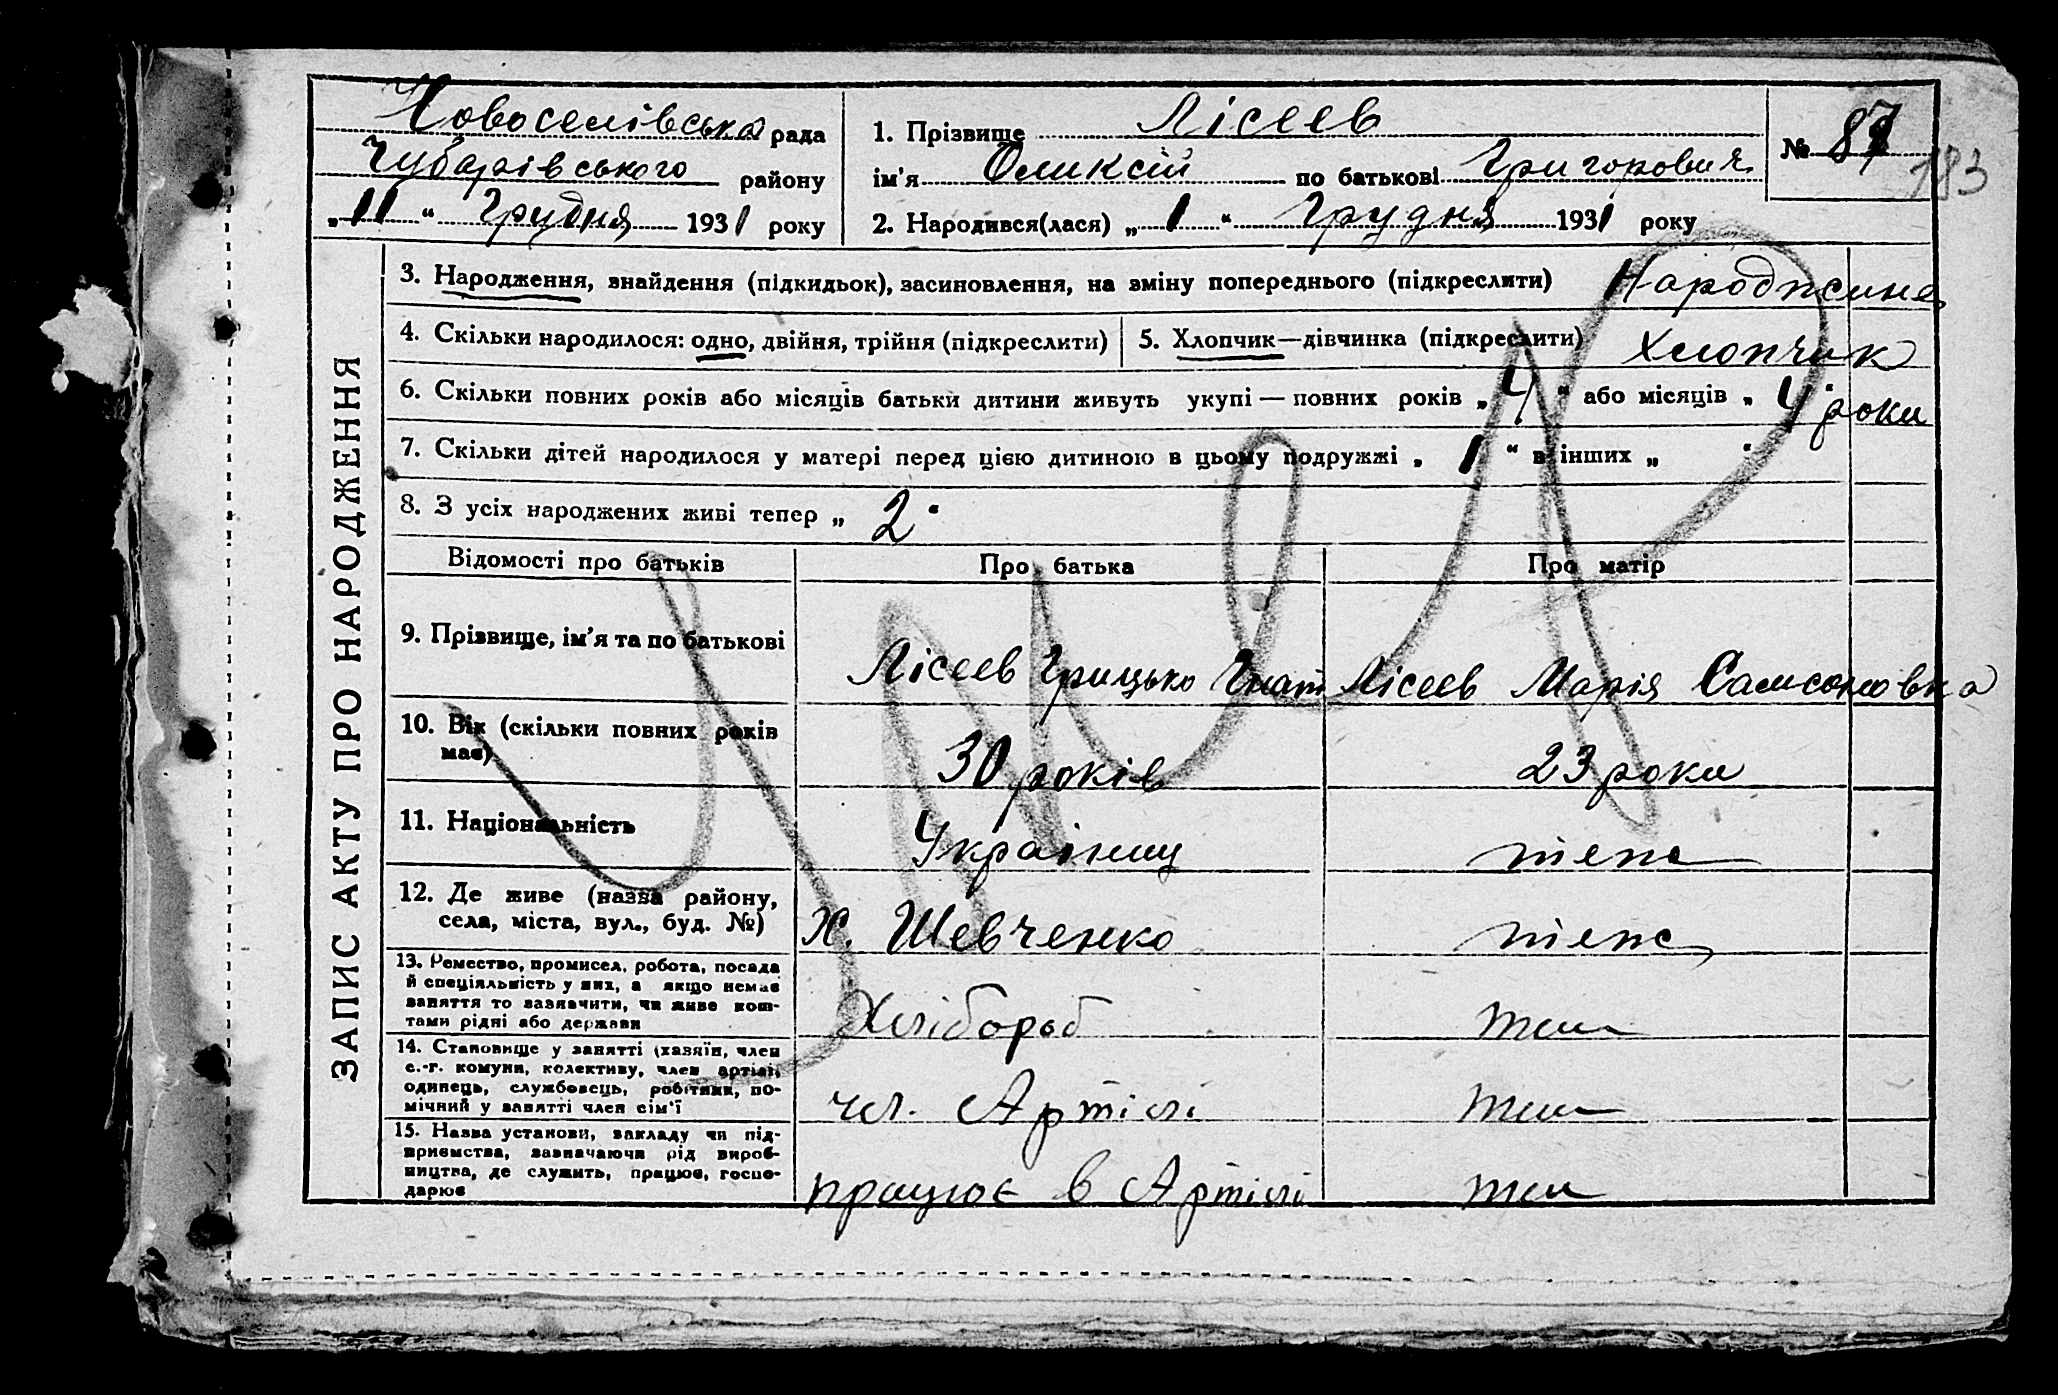 Новоселівська рада
Чубарівського району
„ 11 “ Грудня 1931 року
1. Прізвище Лісеев
ім'я Оликсій по батькові Григорович
2. Народився(лася) „ 1 “ Грудня 1931 року
№ 87
183
ЗАПИС АКТУ ПРО НАРОДЖЕННЯ
3. Народження, знайдення (підкидьок), засиновлення, на зміну попереднього (підкреслити) Народжине
4. Скільки народилося: одно, двійня, трійня (підкреслити) 5. Хлопчик—дівчинка (підкреслити) Хлопчик
6. Скільки повних років або місяців батьки дитини живуть укупі — повних років „ 4 “ або місяців „ 4 “ роки
7. Скільки дітей народилося у матері перед цією дитиною в цьому подружжі „ 1 “ в інших „ “
8. З усіх народжених живі тепер „ 2 “
Відомості про батьків Про батька Про матір
9. Прізвище, ім'я та по батькові
Лісеев Грицько Гнат Лісеев Марія Самсоновка
10. Вік (скільки повних років
має)
30 років 23 роки
11. Національність
Українці теже
12. Де живе (назва району,
села, міста, вул., буд. №)
Х. Шевченко теже
13. Ремество, промисел, робота, посада
й спеціяльність у них, а якщо немає
заняття то зазначити, чи живе кош-
тами рідні або держави
Хлібороб теж
14. Становище у занятті (хазяїн, член
с.-г. комуни, колективу, член артілі,
одинець, службовець, робітник, по-
мічний у занятті член сім'ї
чл. Артілі теж
15. Назва установи, закладу чи під-
приємства, зазначаючи рід вироб-
ництва, де служить, працює, госпо-
дарює
працює в Артілі теж